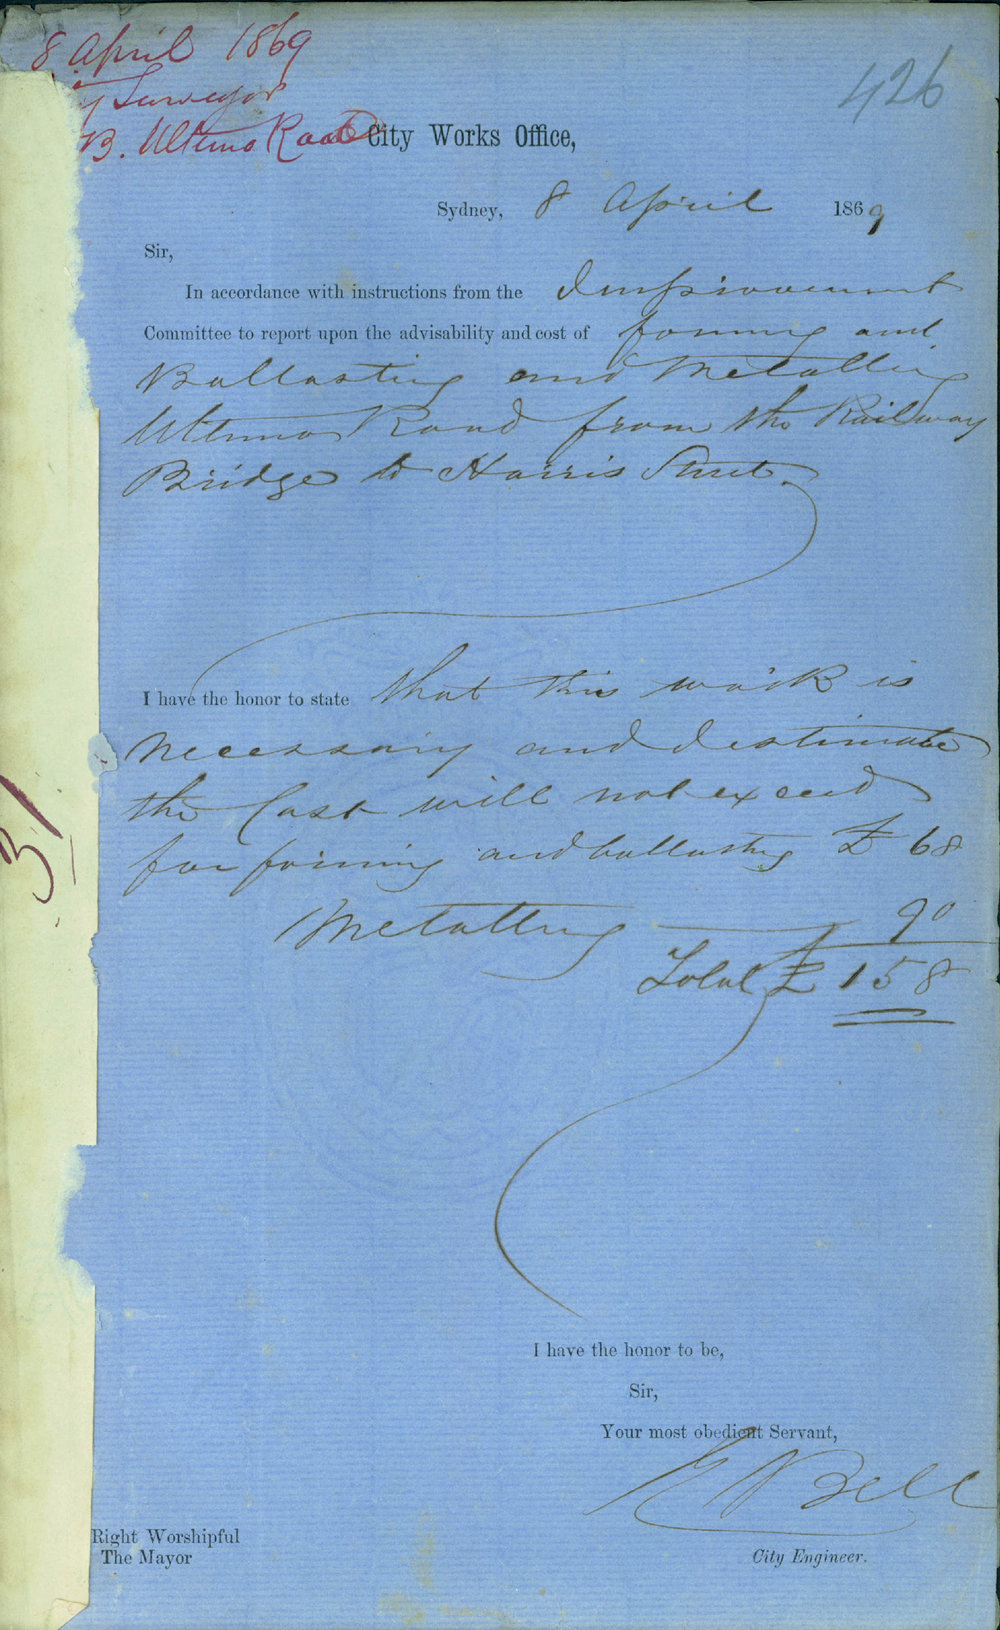 8 April 1869
y Surveyor
B. Ultimo Road
426
City Works Office,
Sydney, 8 April 1869
Sir,
In accordance with instructions from the Improvement
Committee to report upon the advisability and cost of forming and
Ballasting and Metalling
Ultimo Road from the Railway
Bridge to Harris Street.
I have the honor to state that this work is
necessary and I estimate
the Cost will not exceed
for forming and ballasting £ 68
Metalling 90
Total £ 158
31
I have the honor to be,
Sir,
Your most obedient Servant,
E Bell
Right Worshipful
The Mayor
City Engineer.